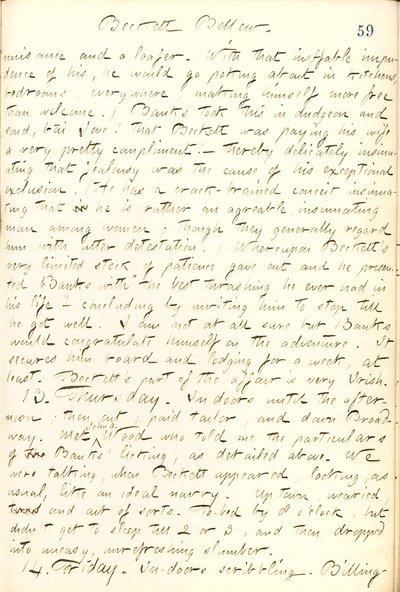 Beckett Bellew.
59
nuisance and a loafer. With that ineffable impu-
dence of his, he would go poking about in kitchens,
bedrooms, everywhere, making himself more free
than welcome.) Banks took this in dudgeon and
said, Jove! that Beckett was paying his wife
a very pretty compliment! — thereby delicately insinu-
ating that jealousy was the cause of his exceptional
exclusion. (He has a crack-brained conceit insinua-
ting that he is rather an agreable insinuating
man among women; though they generally regard
him with utter detestation.) Whereupon Beckett's
very limited stock of patience gave out and he presen-
ted Banks with "the best thrashing he ever had in
his life" — concluding by inviting him to stop till
he got well. I am not at all sure but Banks
would congratulate himself on the adventure. It
secures him board and lodging for a week, at
least. Beckett's part of the affair is very Irish.
13. Thursday. In-doors until the after-
noon; then out; paid tailor, and down Broad-
way. Met John A. Wood who told me the particulars
of Banks' licking, as detailed above. We
were talking, when Beckett appeared, looking, as
usual, like an ideal navvy. Up town, wearied
and out of sorts. To-bed by 8 o'clock, but
didn't get to sleep till 2 or 3, and then dropped
into uneasy, unrefreshing slumber.
14. Friday. In-doors scribbling. Billing-